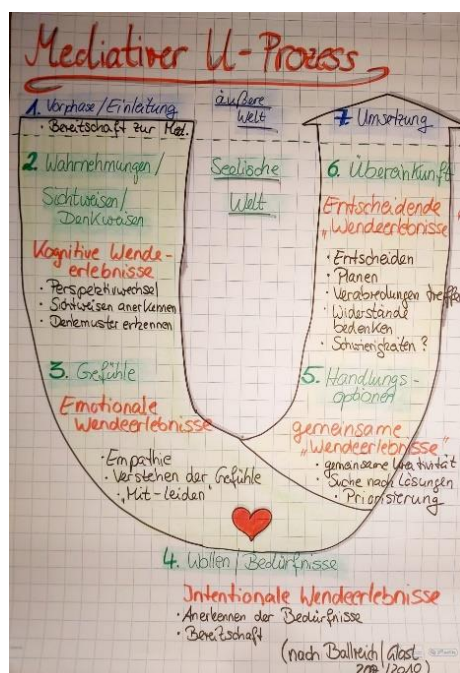 Mediativer U-Prozess
1. Vorphase/Einleitung
• Bereitschaft zur Med.
äußere
Welt
7. Umsetzung
2. Wahrnehmungen/
Sichtweisen/
Denkweisen
Kognitive Wende-
erlebnisse
• Perspektivwechsel
• Sichtweisen anerkennen
• Denkmuster erkennen
Seelische
Welt
6. Übereinkunft
Entscheidende
„Wendeerlebnisse"
• Entscheiden
• Planen
• Verabredungen treffen
• Widerstände
bedenken
• Schwierigkeiten?
3. Gefühle
Emotionale
Wendeerlebnisse
• Empathie
• Verstehen der Gefühle
• „Mit-leiden"
5. Handlungs-
optionen
gemeinsame
„Wendeerlebnisse"
• gemeinsame Kreativität
• Suche nach Lösungen
• Priorisierung
4. Wollen/Bedürfnisse
Intentionale Wendeerlebnisse
• Anerkennen der Bedürfnisse
• Bereitschaft
(nach Ballreich/Glasl
/2010)